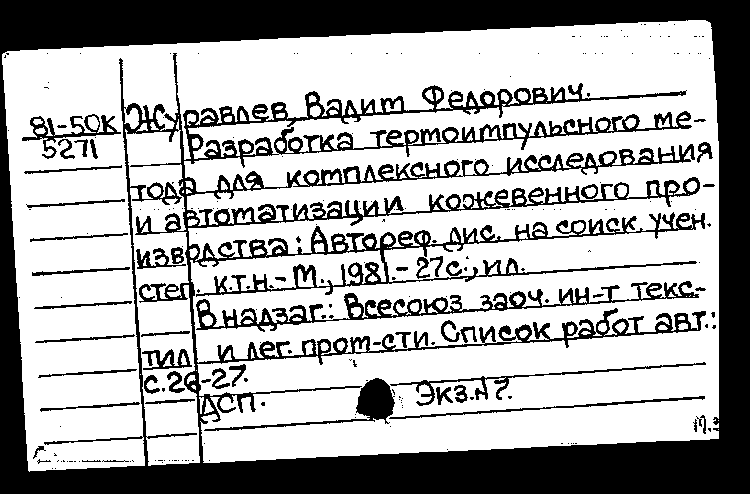 81-50к Журавлев, Вадим Федорович.
5271 Разработка термоимпульсного ме-
тода для комплексного исследования
и автоматизации кожевенного про-
изврдства: Автореф. дис. на соиск. учен.
степ. к.т.н. - М., 1981. - 27с.; ил.
В надзаг.: Всесоюз заоч. ин-т текс-
тил и лег. пром-сти. Список работ авт.:
с.26-27.
ДСП. Экз.№7.